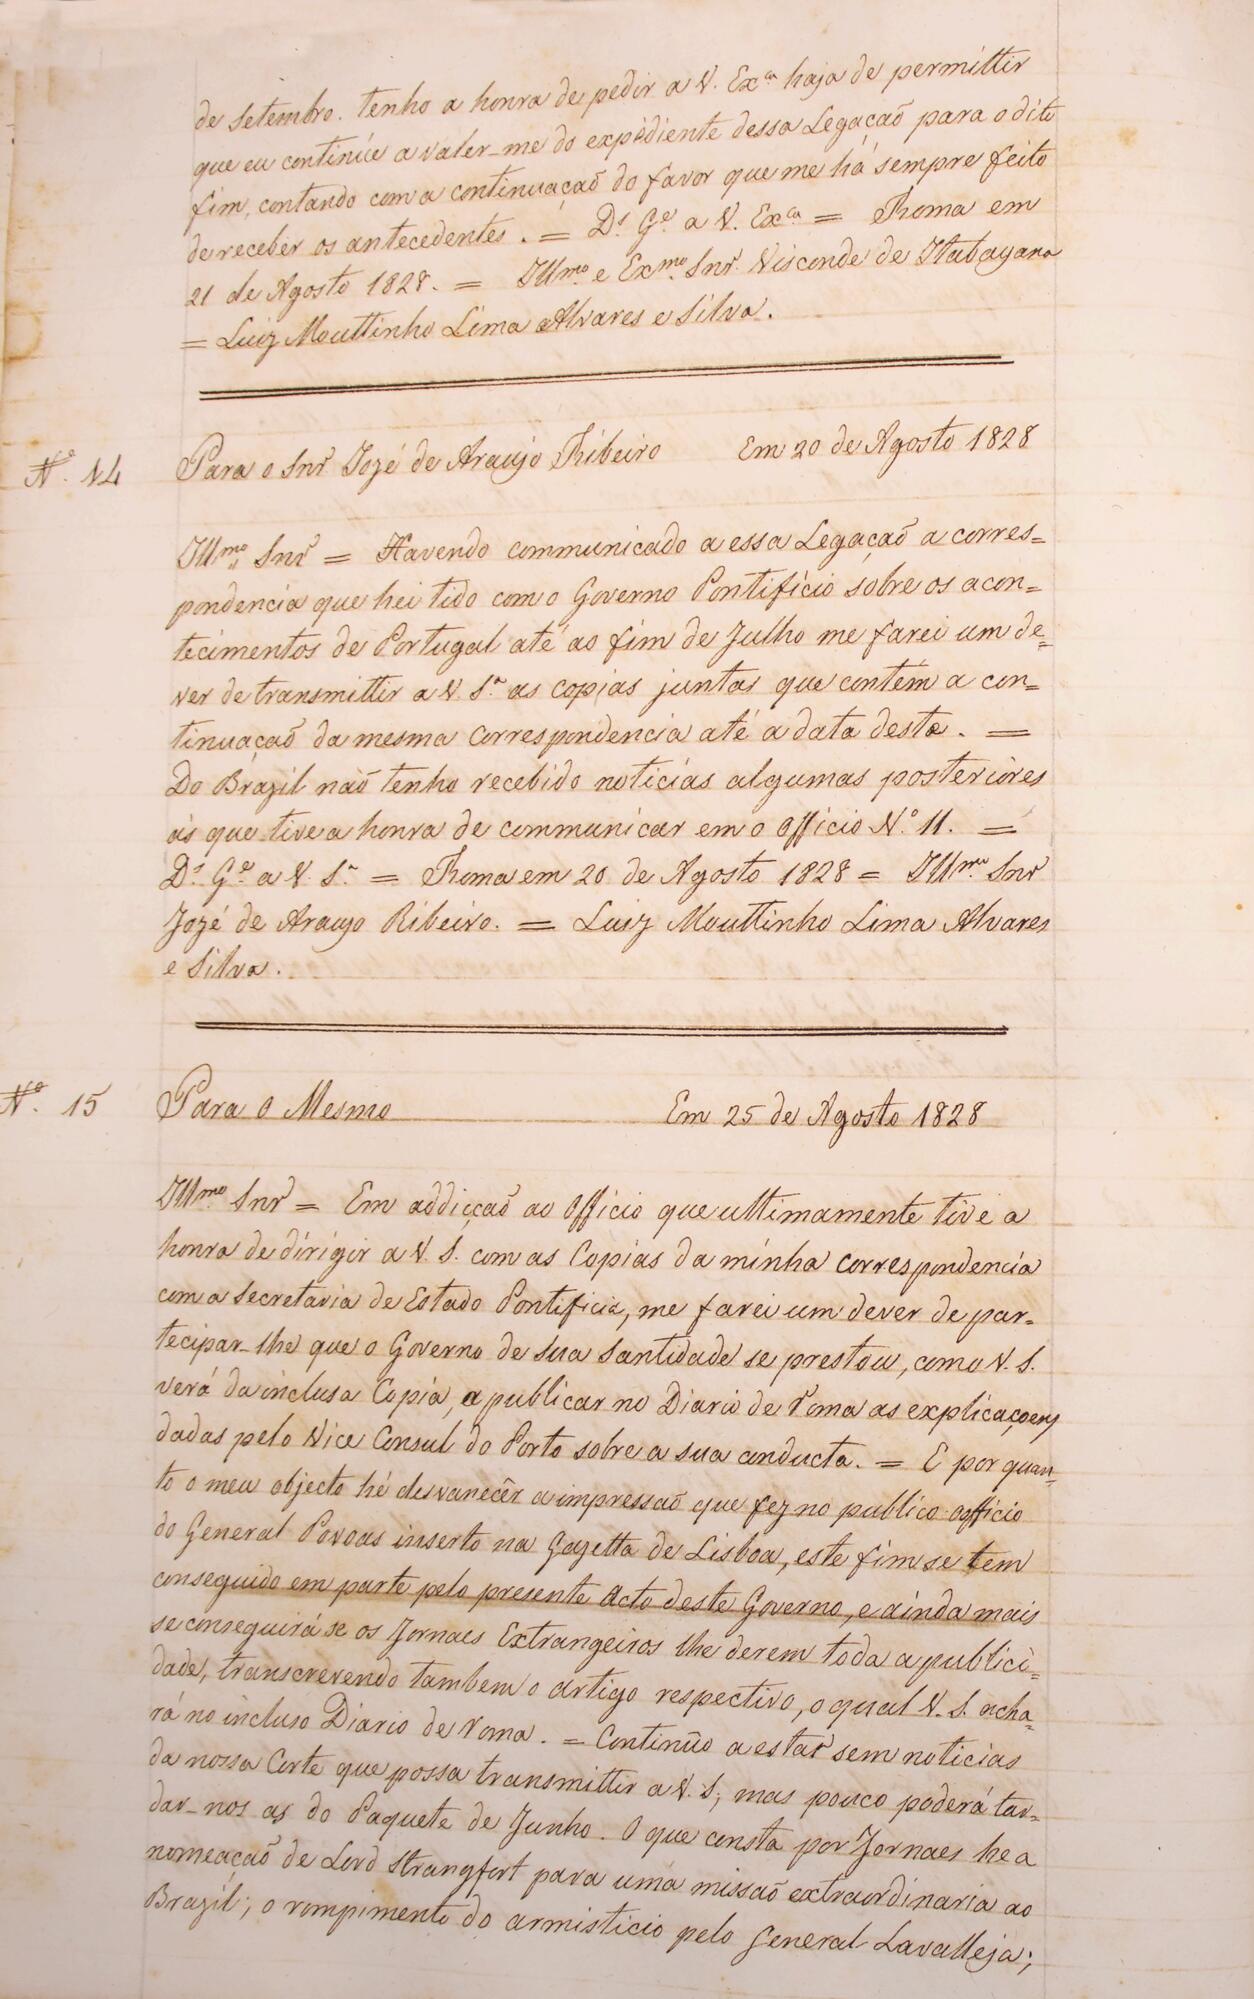 de Setembro. Tenho a honra de pedir a V. Exª haja de permittir
que eu continúe a valer-me do expediente dessa Legação para o dito
fim, contando com a continuação do favor que me há sempre feito
de receber os antecedentes. = Dˢ Gᵉ a V. Exᶜⁱᵃ = Roma em
21 de Agosto 1828. = Illᵐᵒ e Exᵐᵒ Snr. Visconde de Itabayana
= Luiz Mouttinho Lima Alvares e Silva.
Nº. 14 Para o Snr Jozé de Araujo Ribeiro Em 20 de Agosto 1828
Illᵐᵒ Snr = Havendo communicado a essa Legação a corres=
pondencia que hei tido com o Governo Pontificio sobre os acon=
tecimentos de Portugal até ao fim de Julho me farei um de=
ver de transmittir a V. Sª as copias juntas que contem a con=
tinuação da mesma correspondencia até a data desta. =
Do Brazil naõ tenho recebido noticias algumas posteriores
ás que tive a honra de communicar em o Officio Nº 11. =
Dˢ Gᵉ a V. Sª = Roma em 20 de Agosto 1828 = Illᵐᵒ Snr
Jozé de Araujo Ribeiro. = Luiz Mouttinho Lima Alvares
e Silva.
Nº. 15 Para o Mesmo Em 25 de Agosto 1828
Illᵐᵒ Snr = Em addicçaõ ao Officio que ultimamente tive a
honra de dirigir a V. S. com as Copias da minha correspondencia
com a Secretaria de Estado Pontificia, me farei um dever de par-
tecipar-lhe que o Governo de Sua Santidade se prestou, como V. S.
verá da inclusa Copia, a publicar no Diario de Roma as explicaçoens
dadas pelo Vice Consul do Porto sobre a sua conducta. = E por quan-
to o meu objecto hé desvanecêr a impressaõ que fez no publico o officio
do General Povoas inserto na Gazetta de Lisboa, este fim se tem
conseguido em parte pelo presente Acto deste Governo, e ainda mais
se conseguirá se os Jornaes Extrangeiros lhe derem toda a publici=
dade, transcrevendo tambem o artigo respectivo, o qual V. S. acha-
rá no incluso Diario de Roma. = Continûo a estar sem noticias
da nossa Corte que possa transmittir a V. S; mas pouco poderá tar=
dar-nos as do Paquete de Junho. O que consta por Jornaes he a
nomeaçaõ de Lord Strangfort para uma missaõ extraordinaria ao
Brazil; o rompimento do armisticio pelo General Lavalleja;